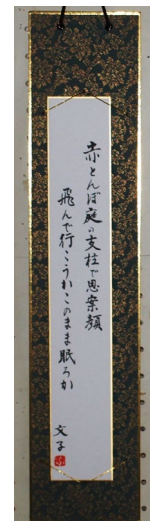 赤とんぼ庭の支柱で思案顔
飛んで行こうかこのまま眠ろか
文子